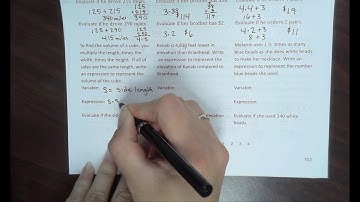 Evaluate if he drove 215 miles.
125 + 215
340 miles
340
Evaluate if he drove 290 miles
125 + 290
415 miles
415
To find the volume of a cube, you
multiply the length, times the
width, times the height. If all of
the sides are the same length, write
an expression to represent the
volume of the cube.
Variable: S = Side length
Expression: S·S
Evaluate if the
Evaluate if her brother had $
3·38
$114
Evaluate if her brother has $2
Kanab is 4,830 feet lower in
elevation than Brianhead. Write
an expression to represent the
elevation of Kanab compared to
Brianhead
Variable:
Expression:
elevation
4·4+3
16+3
$19
Evaluate if he orders 2 pairs.
4·2+3
8+3
$11
Melanie used 1.5 times as many
black beads as she does white beads
to make her necklace. Write an
expression to represent the number
blue beads she used.
Variable:
Expression:
Evaluate if she used 240 white
beads
103